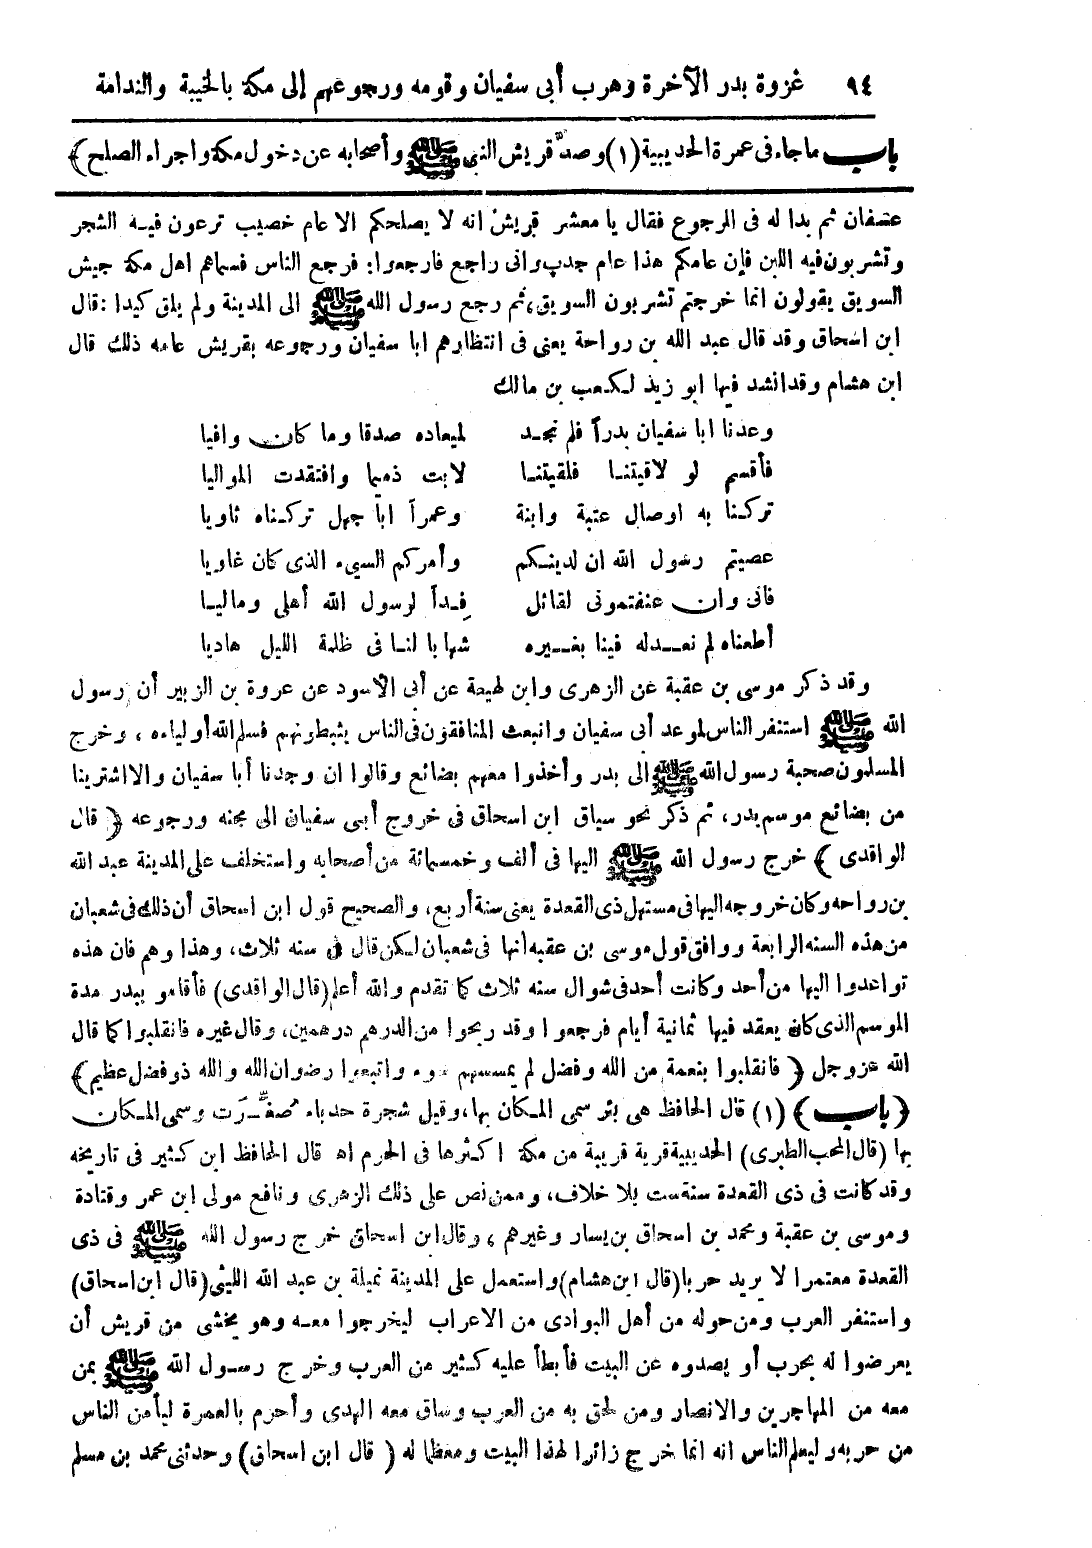 ٩٤ غزوة بدر الآخرة وهرب أبى سفيان وقومه ورجوعهم إلى مكة بالخيبة والندامة
باب ماجاء فى عمرة الحديبية (١) وصدّ قريش النبى ﷺ وأصحابه عن دخول مكة واجراء الصلح ﴾
عسفان ثم بدا له فى الرجوع فقال يا معشر قريش انه لا يصلحكم الا عام خصيب ترعون فيه الشجر
وتشربون فيه اللبن فإن عامكم هذا عام جدب وانى راجع فارجعوا: فرجع الناس فسماهم اهل مكة جيش
السويق يقولون انما خرجتم تشربون السويق، ثم رجع رسول الله ﷺ الى المدينة ولم يلق كيدا: قال
ابن اسحاق وقد قال عبد الله بن رواحة يعنى فى انتظارهم ابا سفيان ورجوعه بقريش عامه ذلك قال
ابن هشام وقد انشد فيها ابو زيد لكعب بن مالك
وعدنا ابا سفيان بدراً فلم نجد لميعاده صدقا وما كان وافيا
فأقسم لو لاقيتنا فلقيتنا لابت ذميما وافتقدت المواليا
تركنا به اوصال عتبة وابنة وعمراً ابا جهل تركناه ثاويا
عصيتم رسول الله ان لدينكم وأمركم السيىء الذى كان غاويا
فانى وان عنفتمونى لقائل فِداً لرسول الله أهلى وماليا
أطعناه لم نعدله فينا بغيره شهابا لنا فى ظلمة الليل هاديا
وقد ذكر موسى بن عقبة عن الزهرى وابن لهيعة عن أبى الاسود عن عروة بن الزبير أن رسول
الله ﷺ استنفر الناس لموعد أبى سفيان وانبعث المنافقون فى الناس يثبطونهم فسلم الله أولياءه، وخرج
المسلمون صحبة رسول الله ﷺ الى بدر وأخذوا معهم بضائع وقالوا ان وجدنا أبا سفيان والا اشترينا
من بضائع موسم بدر، ثم ذكر نحو سياق ابن اسحاق فى خروج أبى سفيان الى مجنه ورجوعه ﴿ قال
الواقدى ﴾ خرج رسول الله ﷺ اليها فى ألف وخمسمائة من أصحابه واستخلف على المدينة عبد الله
بن رواحه وكان خروجه اليها فى مستهل ذى القعدة يعنى سنة أربع، والصحيح قول ابن اسحاق أن ذلك فى شعبان
من هذه السنه الرابعة ووافق قول موسى بن عقبه أنها فى شعبان لكن قال فى سنه ثلاث، وهذا وهم فان هذه
تواعدوا اليها من أحد وكانت أحد فى شوال سنه ثلاث كما تقدم والله أعلم (قال الواقدى) فأقامو ببدر مدة
الموسم الذى كان يعقد فيها ثمانية أيام فرجعوا وقد ربحوا من الدرهم درهمين، وقال غيره فانقلبوا كما قال
الله عز وجل ﴿ فانقلبوا بنعمة من الله وفضل لم يمسسهم سوء واتبعوا رضوان الله والله ذو فضل عظيم ﴾
﴿ باب ﴾ (١) قال الحافظ هى بئر سمى المكان بها، وقيل شجرة حدباء صغّرت وسمى المكان
بها (قال المحب الطبرى) الحديبية قرية قريبة من مكة اكثرها فى الحرم اه قال الحافظ ابن كثير فى تاريخه
وقد كانت فى ذى القعدة سنة ست بلا خلاف، وممن نص على ذلك الزهرى ونافع مولى ابن عمر وقتادة
وموسى بن عقبة ومحمد بن اسحاق بن يسار وغيرهم، وقال ابن اسحاق خرج رسول الله ﷺ فى ذى
القعدة معتمرا لا يريد حربا (قال ابن هشام) واستعمل على المدينة نميلة بن عبد الله الليثى (قال ابن اسحاق)
واستنفر العرب ومن حوله من أهل البوادى من الاعراب ليخرجوا معه وهو يخشى من قريش أن
يعرضوا له بحرب أو يصدوه عن البيت فأبطأ عليه كثير من العرب وخرج رسول الله ﷺ بمن
معه من المهاجرين والانصار ومن لحق به من العرب وساق معه الهدى وأحرم بالعمرة ليأمن الناس
من حربه وليعلم الناس انه انما خرج زائرا لهذا البيت ومعظما له ( قال ابن اسحاق) وحدثنى محمد بن مسلم